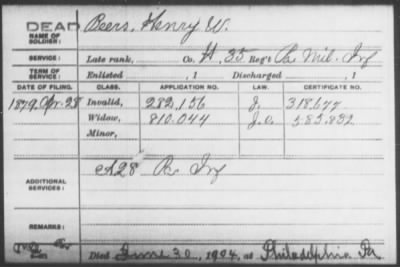 DEAD
NAME OF SOLDIER: Beers, Henry W.
SERVICE: Late rank, Co. H, 35 Reg't Pa Mil. Inf
TERM OF SERVICE: Enlisted , 1 Discharged , 1
DATE OF FILING. CLASS. APPLICATION NO. LAW. CERTIFICATE NO.
1879 Apr. 28 Invalid, 282,156 J. 318.677
Widow, 810.044 J.a. 585.832
Minor,
ADDITIONAL SERVICES: A 28 Pa Inf
REMARKS:
Died June 30, 1904, at Philadelphia Pa